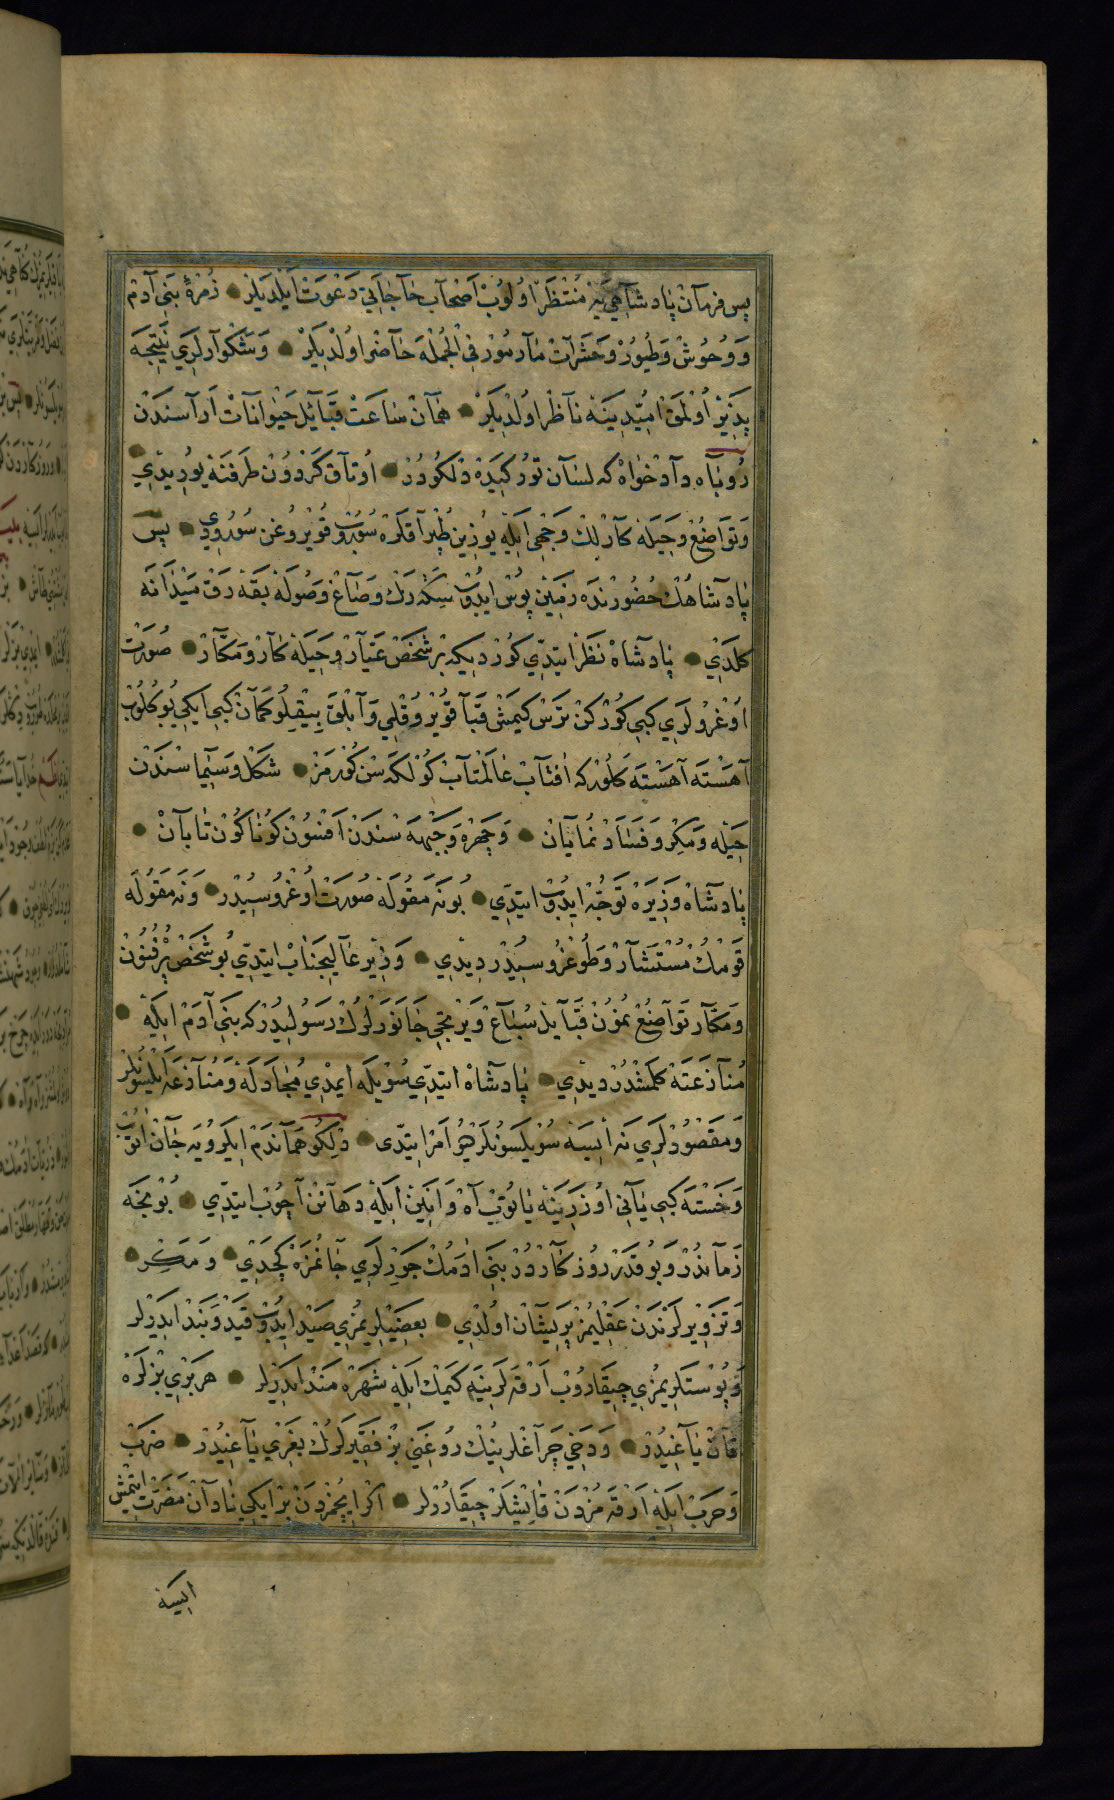 پس فرمان پادشاهی یه منتظر اولوب اصحاب حاجاتی دعوت ایلدیلر زمرهٔ بنی آدم
و وحوش و طیور و حشرات مار مور فی الجمله حاضر اولدیلر و شکوالری نتیجه
پذیر اولمق امیدینه ناظر اولدیلر همان ساعت قبایل حیوانات آراسندن
روباه دادخواه که لسان تورکیده دلکودر اوتاق کردون طرفنه یوریدی
و تواضع و حیله کارلك وجهی ایله یوزین طپراقلره سوروب قویروغن سوردی پس
پادشاهك حضورنده زمین پوس ایدوب سکردرك و صاغ و صوله بقه رق میدانه
کلدی پادشاه نظر ایتدی کوردیکه بر شخص عیار و حیله کار و مکار صورت
اوغرولری کبی کورکن ترس کیمش قبا قویروقلی و آبلق بیقلو کمان کبی ایکی بوکلوب
آهسته آهسته کلور که افتاب عالمتاب کولکه سن کورمز شکل و سیماسندن
حیله و مکر و فساد نمایان و چهره و جبهه سندن افسون کوناکون تابان
پادشاه وزیره توجه ایدوب ایتدی بو نه مقوله صورت اوغروسیدر و نه مقوله
قومك مستشار و طوغروسیدر دیدی وزیر عالیجناب ایتدی بو شخص پرفنون
و مکار تواضع نمون قبایل سباع و یرتجی جانورلرك رسولیدر که بنی آدم ایله
منازعته کلمشدر دیدی پادشاه ایتدی سویله ایمدی مجادله و منازعه ایلسونلر
و مقصودلری نه ایسه سویلسونلر دیو امر ایتدی دلکو هماندم ایلرویه جان اتوب
و خسته کبی یانی اوزرینه یاتوب آه و انین ایله دهانن آچوب ایتدی بونجه
زماندر و بو قدر روزکاردر بنی ادمك جورلری جانمزه کچدی و مکر
و تزویرلرندن عقلیمز پریشان اولدی بعضیلریمزی صید ایدوب قید و بند ایدرلر
و پوستلریمزی چیقاروب ارقه لرینه کیمك ایله شهره مند ایدرلر هر بری بزلره
قان یاغیدر و دخی چراغلرینك روغنی بز فقیرلرك بغری یاغیدر ضرب
و حرب ایله ارقه مزدن قایشلر چیقاررلر اکر ایچمزدن بر ایکی نادان مضرت ایتمش
ایسه